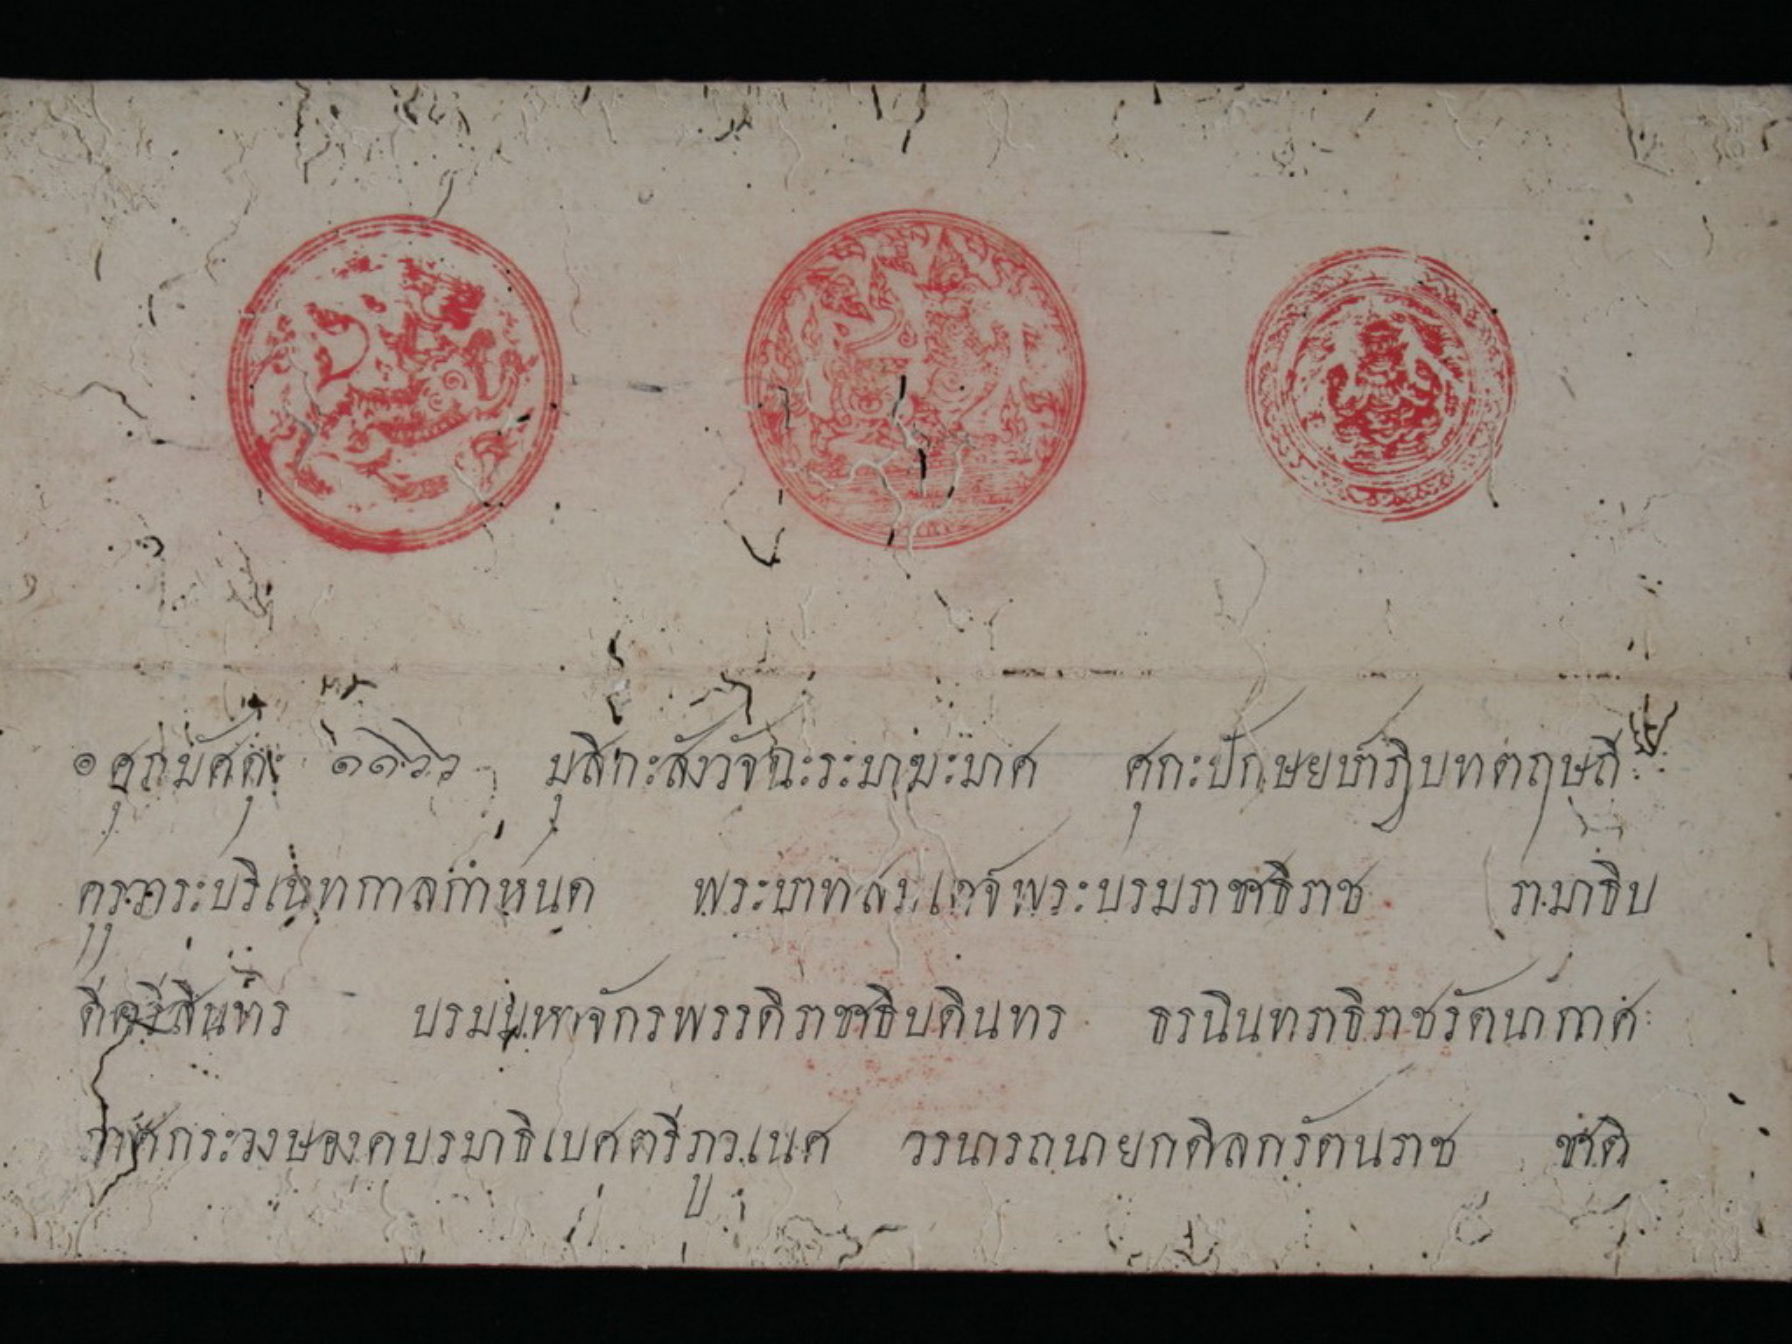 ๏ ศุภมัศดุ ๑๑๖๖ มุสิกะสังวัจฉะระมาฆะมาศ ศุกะปักษยหาฏิบทตฤษถี
คุรุวาระบริเฉทกาลกำหนด พระบาทสมเดจ์พระบรมราชาธิราช รามาธิบ
ดีศรีสินทร บรมมหาจักรพรรดิราชาธิบดินทร ธรนินทราธิราชรัตนากาศ
ภาศกระวงษองคบรมาธิเบศตรีภูวเนศ วรนารถนายกดิลกรัตนราช ชาติ